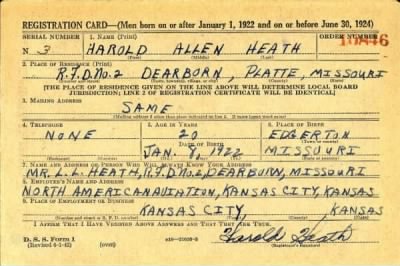 REGISTRATION CARD—(Men born on or after January 1, 1922 and on or before June 30, 1924)
SERIAL NUMBER 1. NAME (Print) ORDER NUMBER
N 3 HAROLD ALLEN HEATH 10846
(First) (Middle) (Last)
2. PLACE OF RESIDENCE (Print)
R.F.D. No. 2 DEARBORN, PLATTE, MISSOURI
(Number and street) (Town, township, village, or city) (County) (State)
[THE PLACE OF RESIDENCE GIVEN ON THE LINE ABOVE WILL DETERMINE LOCAL BOARD
JURISDICTION; LINE 2 OF REGISTRATION CERTIFICATE WILL BE IDENTICAL]
3. MAILING ADDRESS
SAME
[Mailing address if other than place indicated on line 2. If same insert word same]
4. TELEPHONE 5. AGE IN YEARS 6. PLACE OF BIRTH
NONE 20 EDGERTON
DATE OF BIRTH (Town or county)
JAN. 8, 1922 MISSOURI
(Exchange) (Number) (Mo.) (Day) (Yr.) (State or country)
7. NAME AND ADDRESS OF PERSON WHO WILL ALWAYS KNOW YOUR ADDRESS
MR. L. L. HEATH, R.F.D. No. 2, DEARBORN, MISSOURI
8. EMPLOYER'S NAME AND ADDRESS
NORTH AMERICAN AVIATION, KANSAS CITY, KANSAS
9. PLACE OF EMPLOYMENT OR BUSINESS
KANSAS CITY, KANSAS
(Number and street or R. F. D. number) (Town) (County) (State)
I AFFIRM THAT I HAVE VERIFIED ABOVE ANSWERS AND THAT THEY ARE TRUE.
D. S. S. Form 1
(Revised 6-9-42) (over) Harold Heath
(Registrant's signature)